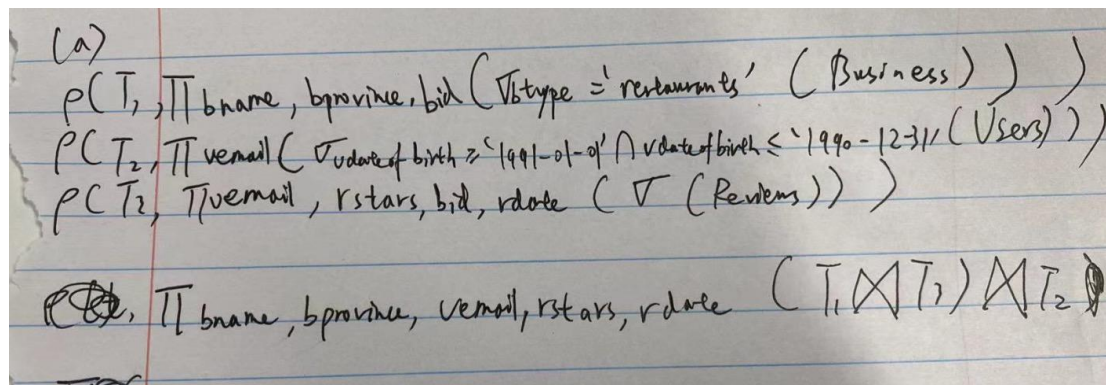 (a)
ρ(T₁, π bname, bprovince, bid (σ btype = 'restaurants' (Business)))
ρ(T₂, π uemail (σ udateofbirth ≥ '1991-01-01' ∩ udateofbirth ≤ '1990-12-31' (Users)))
ρ(T₃, π uemail, rstars, bid, rdate (σ (Reviews)))
, π bname, bprovince, uemail, rstars, rdate (T₁ ⋈ T₃) ⋈ T₂